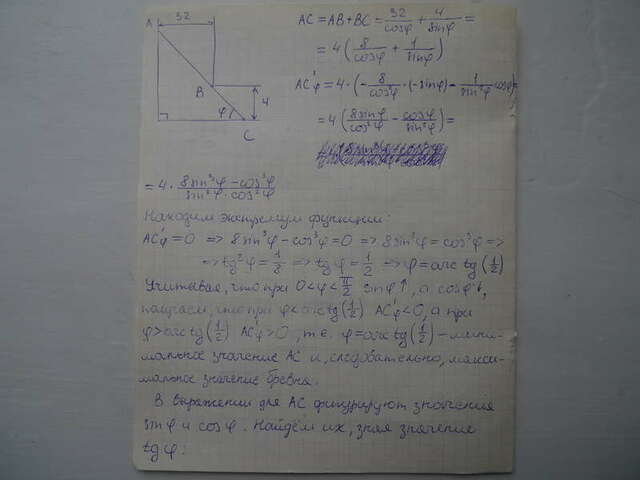 32
A
B
4
φ
C
AC = AB + BC = 32/cosφ + 4/sinφ =
= 4 (8/cosφ + 1/sinφ)
AC'φ = 4·(-8/cos²φ·(-sinφ) - 1/sin²φ cosφ) =
= 4 (8sinφ/cos²φ - cosφ/sin²φ) =
= 4· (8sin³φ - cos³φ)/(sin²φ·cos²φ)
Находим экстремум функции:
AC'φ = 0 => 8sin³φ - cos³φ = 0 => 8sin³φ = cos³φ =>
=> tg³φ = 1/8 => tgφ = 1/2 => φ = arctg (1/2)
Учитывая, что при 0<φ<π/2 sinφ↑, а cosφ↓,
получаем, что при φ<arctg(1/2) AC'φ<0, а при
φ>arctg(1/2) AC'φ>0, т.е. φ=arctg(1/2) – мини-
мальное значение AC и, следовательно, макси-
мальное значение бревна.
В выражении для AC фигурируют значения
sinφ и cosφ. Найдём их, зная значение
tgφ: